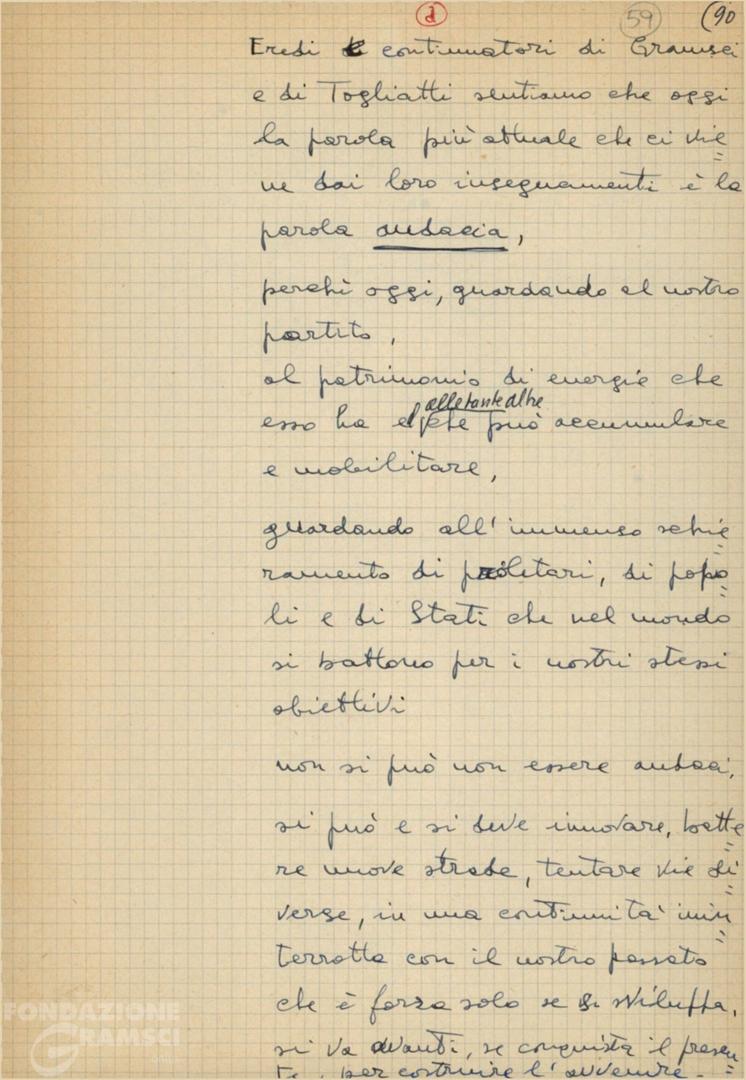 a
59
(90
Eredi e continuatori di Gramsci
e di Togliatti sentiamo che oggi
la parola più attuale che ci vie=
ne dai loro insegnamenti è la
parola audacia,
perchè oggi, guardando al nostro
partito,
al patrimonio di energie che
alle tante altre
esso ha e che può accumulare
e mobilitare,
guardando all'immenso schie=
ramento di proletari, di popo=
li e di Stati che nel mondo
si battono per i nostri stessi
obiettivi
non si può non essere audaci,
si può e si deve innovare, batte=
re nuove strade, tentare vie di=
verse, in una continuità inin=
terrotta con il nostro passato
che è forza solo se si sviluppa,
si va avanti, se conquista il presen
te, per costruire l'avvenire.
FONDAZIONE
GRAMSCI